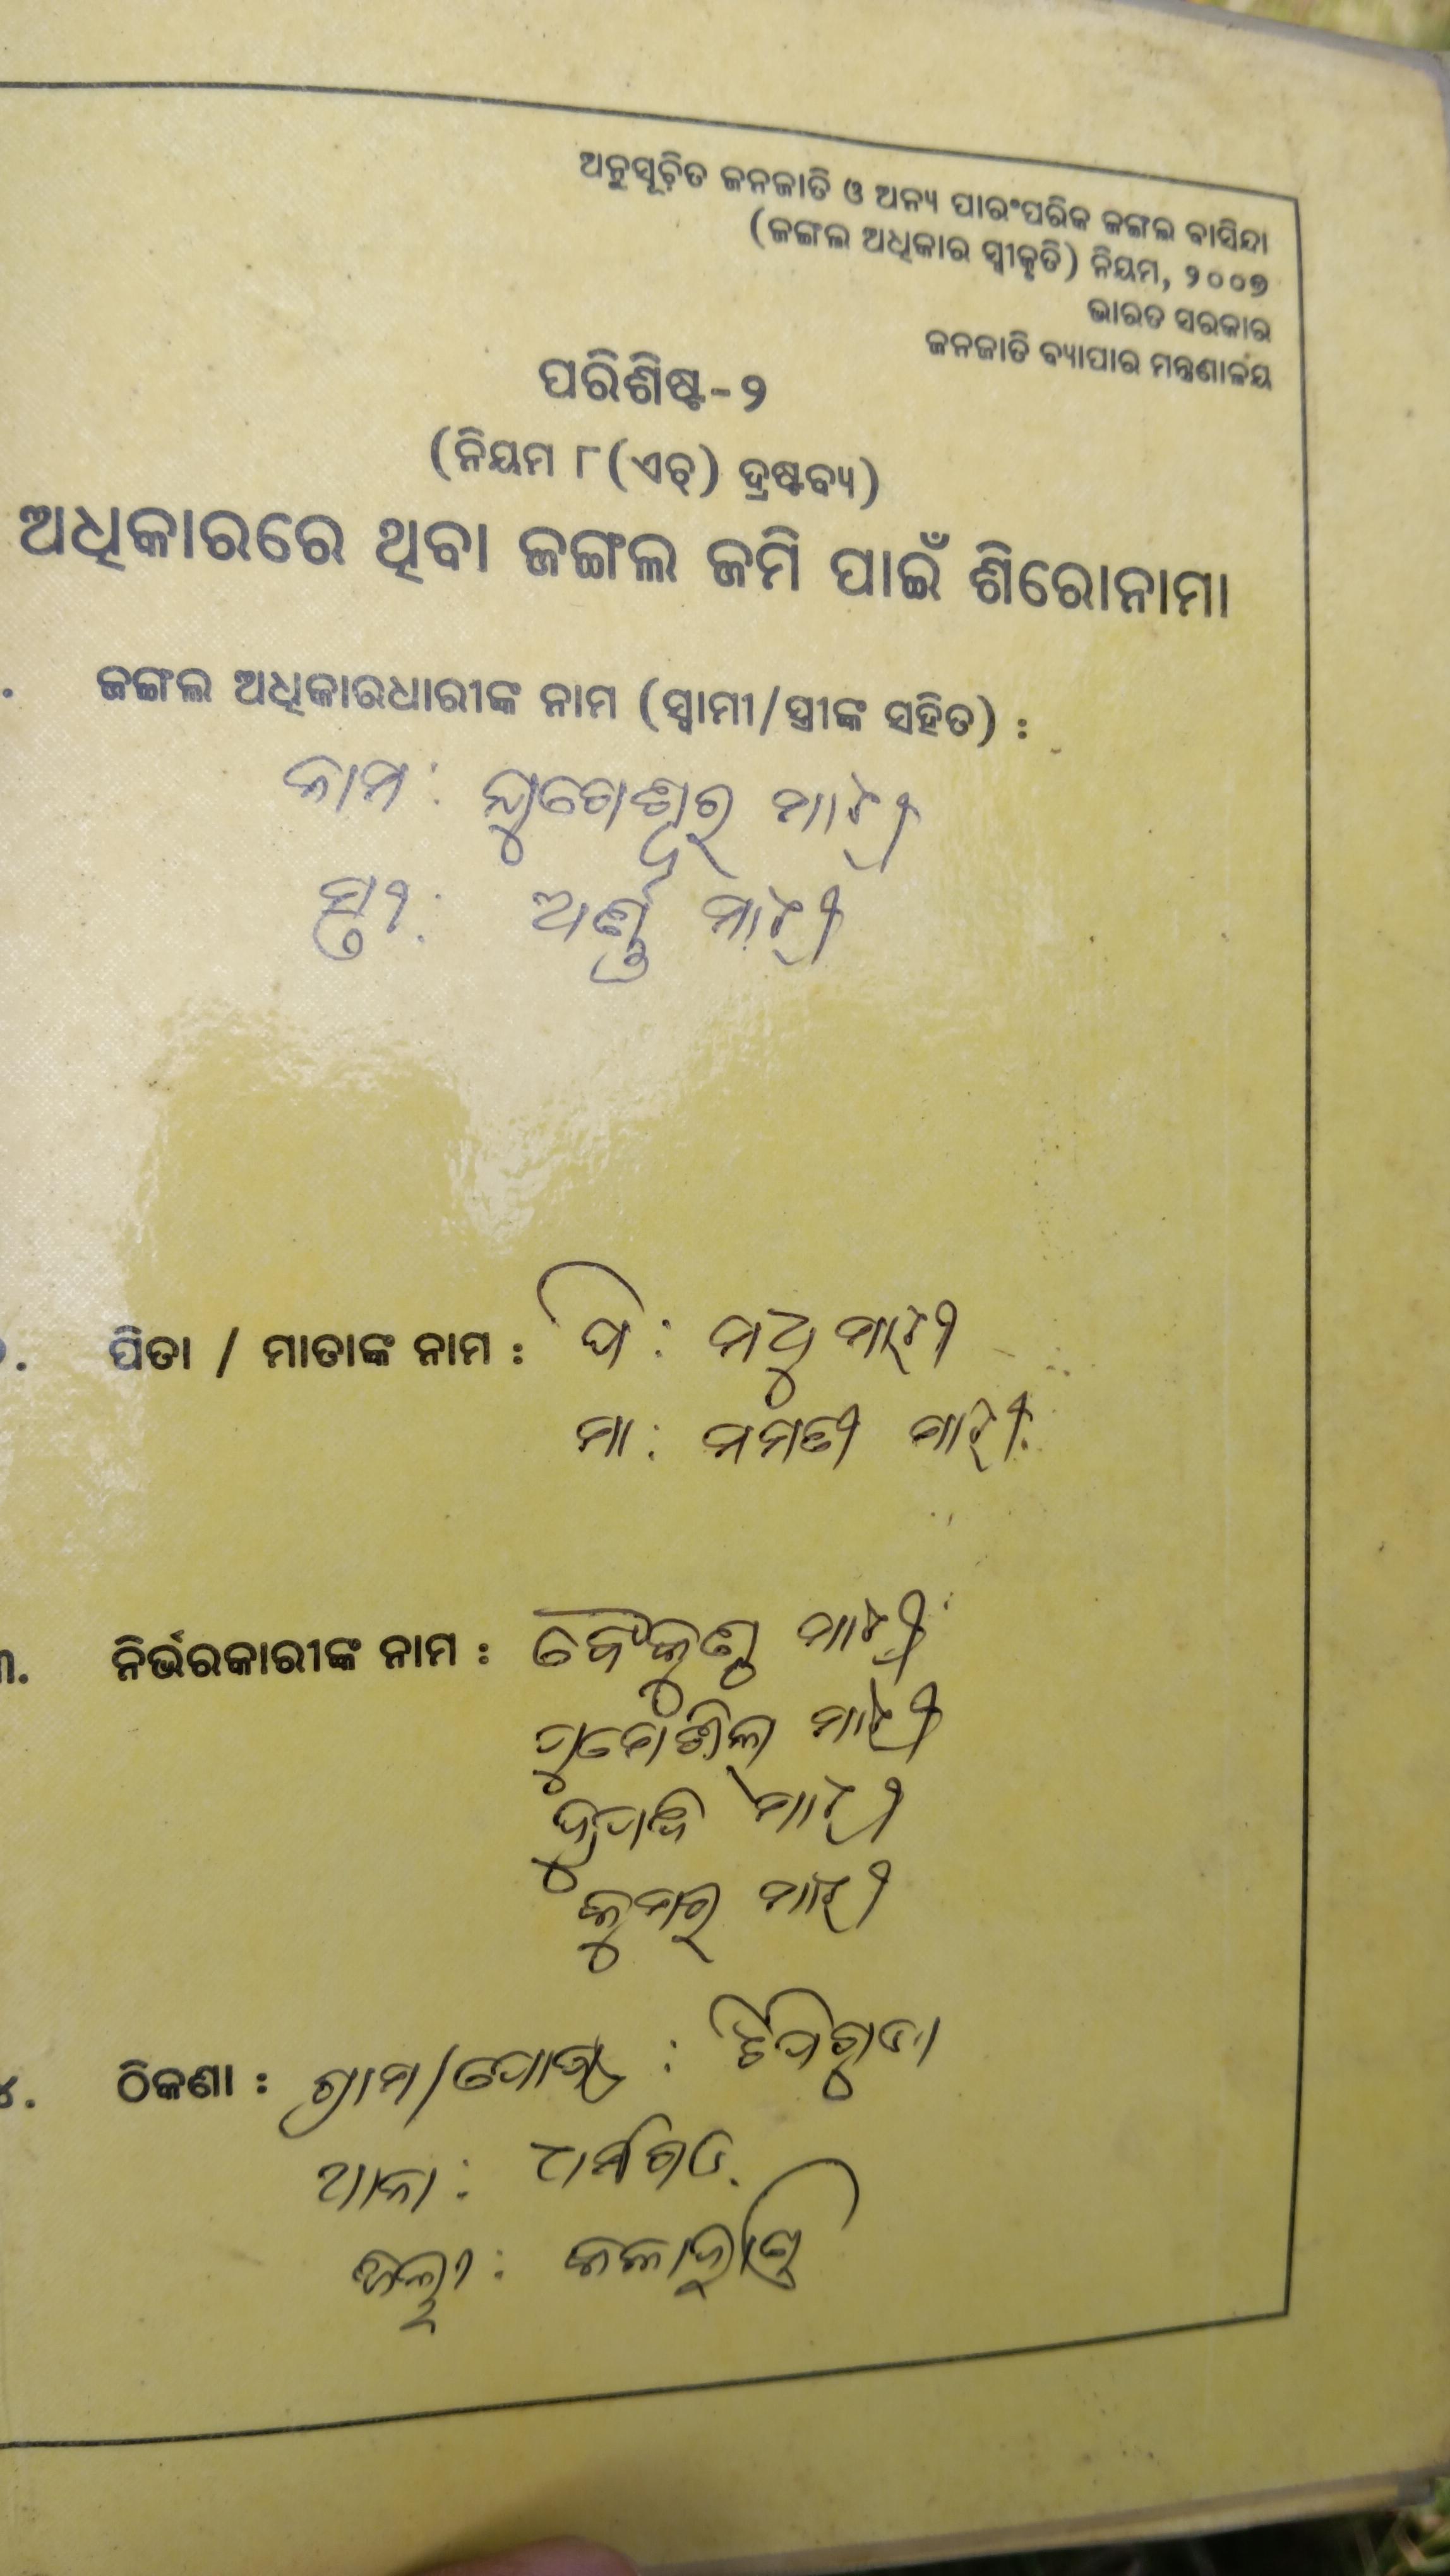 ଅନୁସୂଚିତ ଜନଜାତି ଓ ଅନ୍ୟ ପାରଂପରିକ ଜଙ୍ଗଲ ବାସିନ୍ଦା
(ଜଙ୍ଗଲ ଅଧିକାର ସ୍ୱୀକୃତି) ନିୟମ, ୨୦୦୭
ଭାରତ ସରକାର
ଜନଜାତି ବ୍ୟାପାର ମନ୍ତ୍ରଣାଳୟ
ପରିଶିଷ୍ଟ-୨
(ନିୟମ ୮(ଏଚ୍) ଦ୍ରଷ୍ଟବ୍ୟ)
ଅଧିକାରରେ ଥିବା ଜଙ୍ଗଲ ଜମି ପାଇଁ ଶିରୋନାମା
ଜଙ୍ଗଲ ଅଧିକାରଧାରୀଙ୍କ ନାମ (ସ୍ୱାମୀ/ସ୍ତ୍ରୀଙ୍କ ସହିତ) :
ନାମ : ମାଝୀ
ସ୍ତ୍ରୀ : ମାଝୀ
ପିତା / ମାତାଙ୍କ ନାମ : ପି : ମଧୁ ମାଝୀ
ମା : ମାଝୀ
୩. ନିର୍ଭରକାରୀଙ୍କ ନାମ : ବୈକୁଣ୍ଠ ମାଝୀ
ମାଝୀ
ମାଝୀ
ମାଝୀ
୪. ଠିକଣା : ଗ୍ରାମ/ପୋଷ୍ଟ :
ଥାନା : ଧର୍ମଗଡ
ଜିଲ୍ଲା : କଳାହାଣ୍ଡି